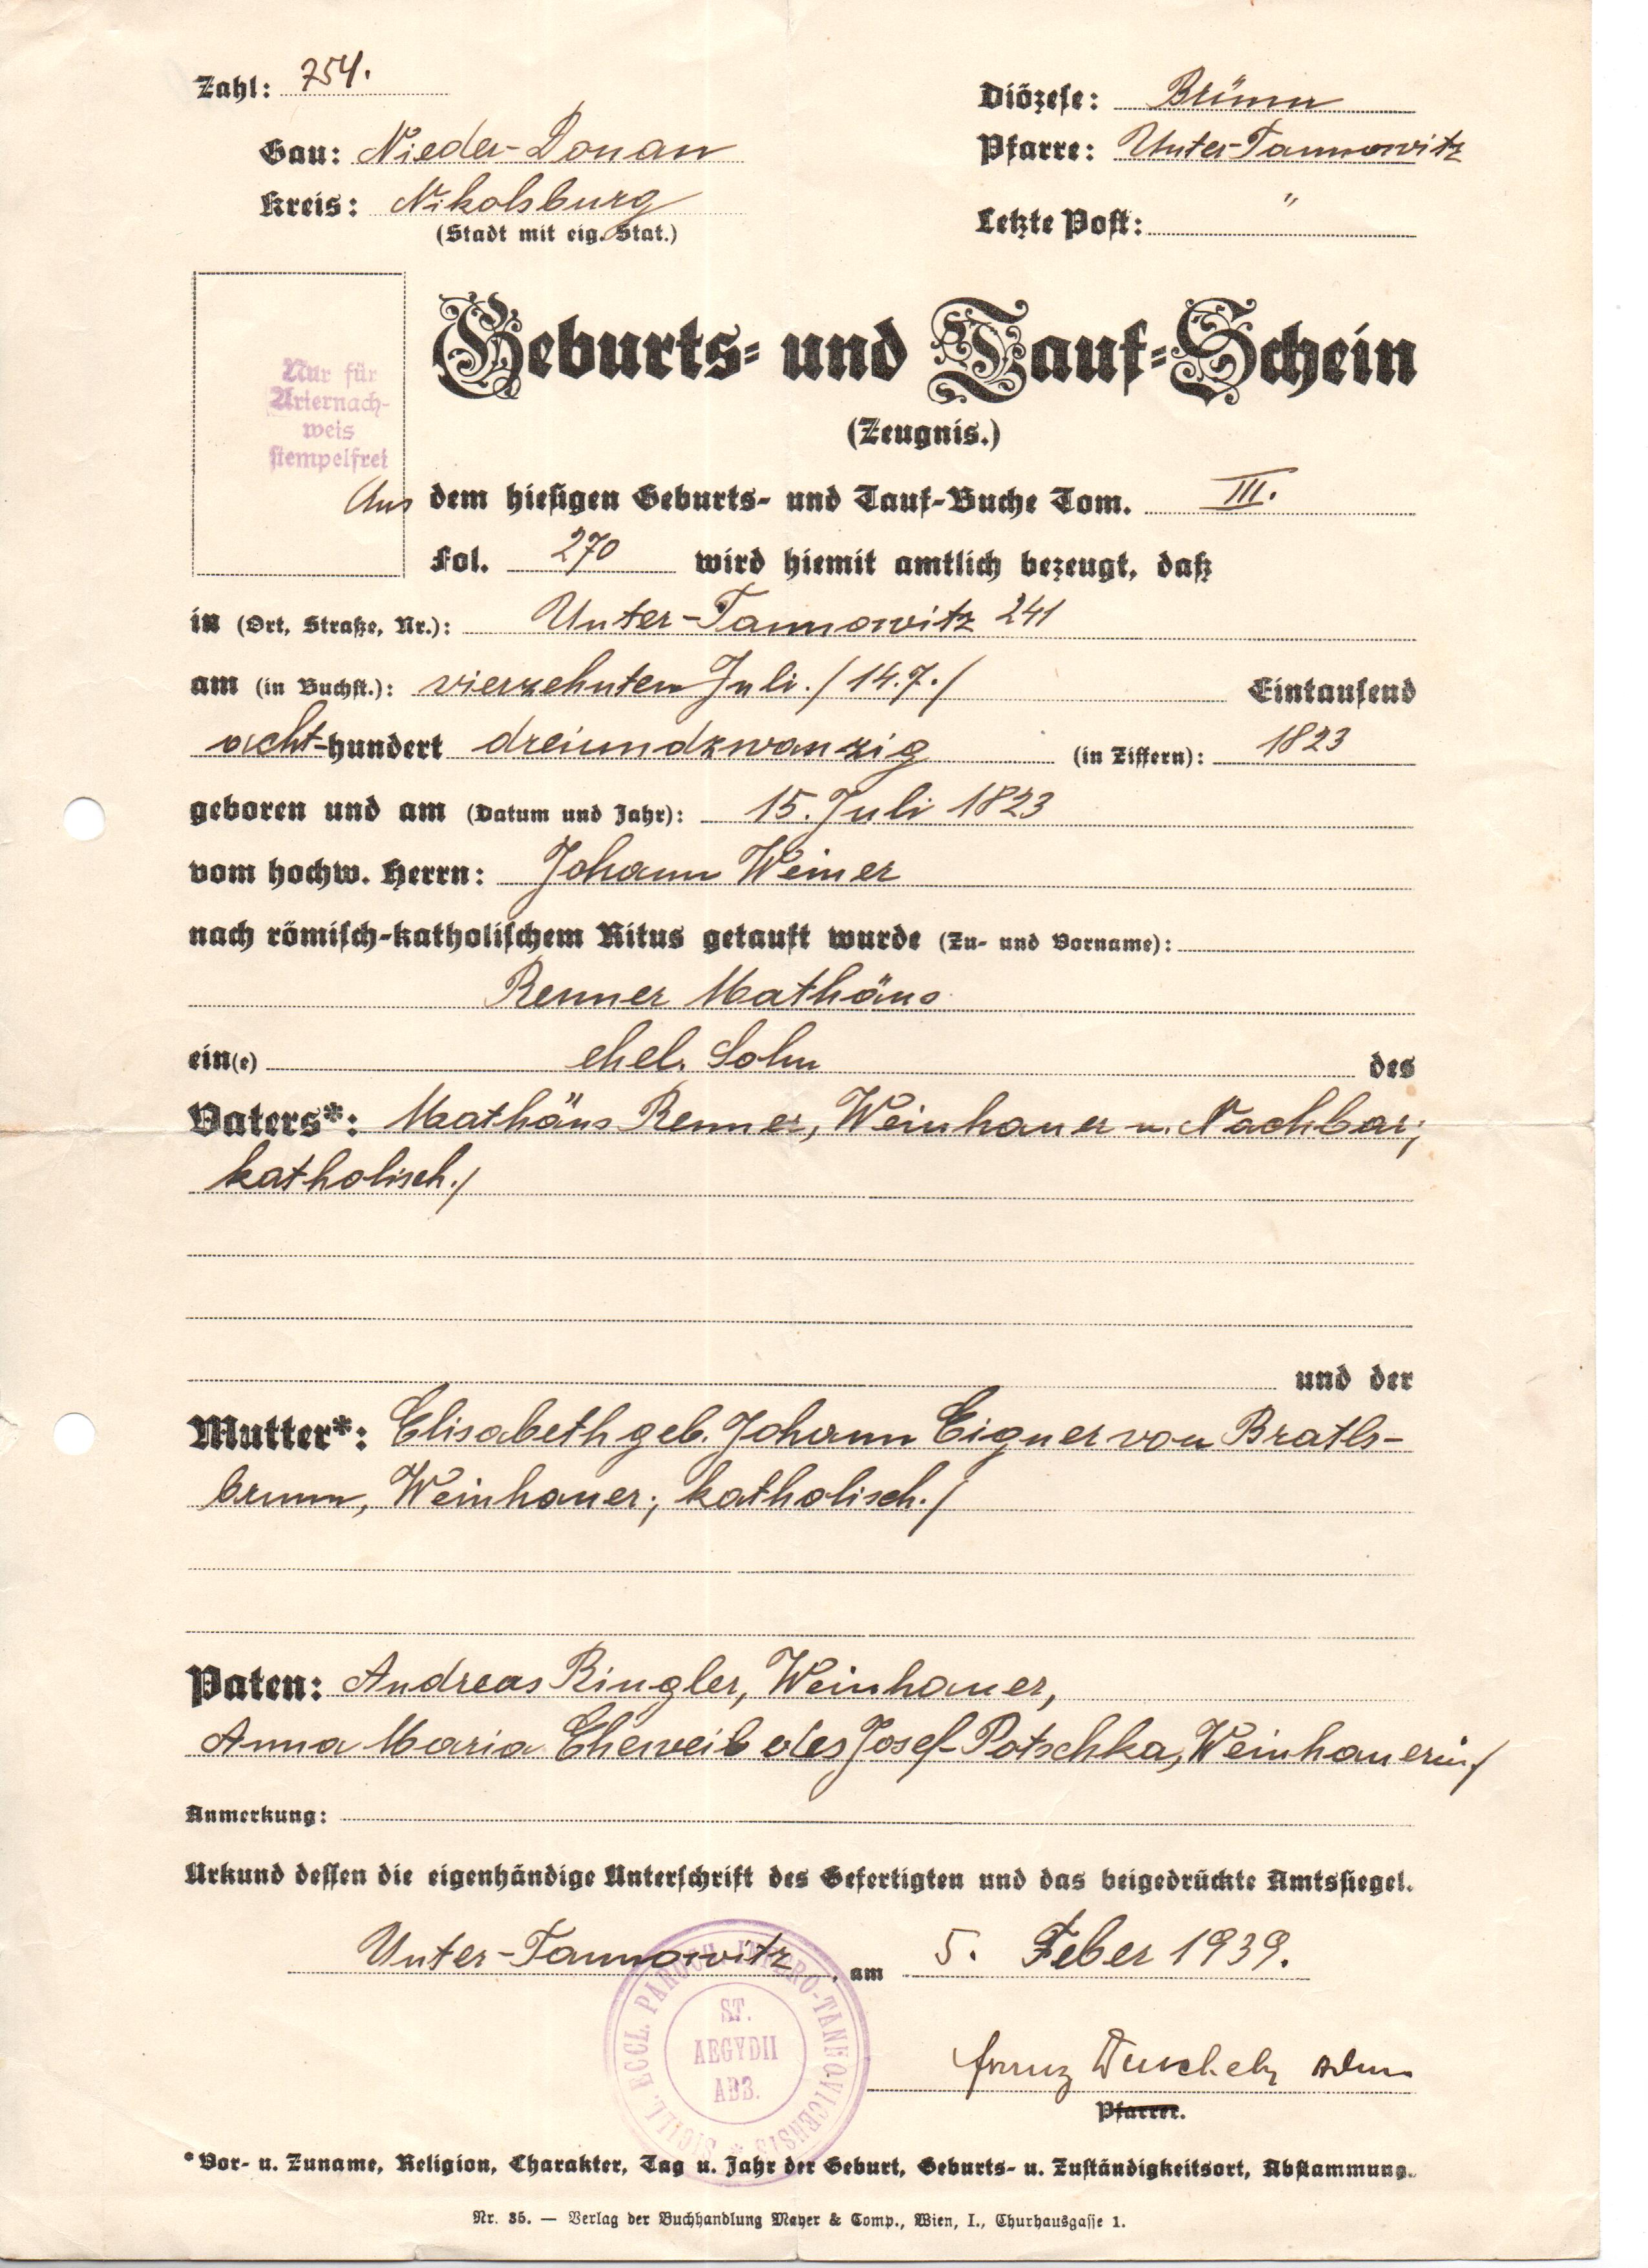 Zahl: 754.
Diözese: Brünn
Gau: Nieder-Donau
Pfarre: Unter-Tannowitz
Kreis: Nikolsburg
(Stadt mit eig. Stat.)
Letzte Post: "
Geburts- und Tauf-Schein
(Zeugnis.)
Nur für
Ariernach-
weis
stempelfrei
Aus dem hiesigen Geburts- und Tauf-Buche Tom. III.
Fol. 270 wird hiemit amtlich bezeugt, daß
in (Ort, Straße, Nr.): Unter-Tannowitz 241
am (in Buchst.): vierzehnten Juli./14.7./ Eintausend
acht-hundert dreiundzwanzig (in Ziffern): 1823
geboren und am (Datum und Jahr): 15. Juli 1823
vom hochw. Herrn: Johann Weiner
nach römisch-katholischem Ritus getauft wurde (Zu- und Vorname):
Renner Mathäus
ein(e) ehel. Sohn des
Vaters*: Mathäus Renner, Weinhauer u. Nachbar;
katholisch./
und der
Mutter*: Elisabeth geb. Johann Eigner von Bratls-
brunn, Weinhauer; katholisch./
Paten: Andreas Ringler, Weinhauer,
Anna Maria Eheweib des Josef Potschka, Weinhauerin/
Anmerkung:
Urkund dessen die eigenhändige Unterschrift des Gefertigten und das beigedrückte Amtssiegel.
Unter-Tannowitz, am 5. Feber 1939.
SIGILL. ECCL. PAROCH. INFERO-TANNOVICENSIS *
ST.
AEGYDII
ABB.
Franz
Pfarrer.
*Vor- u. Zuname, Religion, Charakter, Tag u. Jahr der Geburt, Geburts- u. Zuständigkeitsort, Abstammung.
Nr. 35. — Verlag der Buchhandlung Mayer & Comp., Wien, I., Churhausgasse 1.